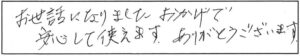 お世話になりました おかげで
安心して使えます ありがとうございます